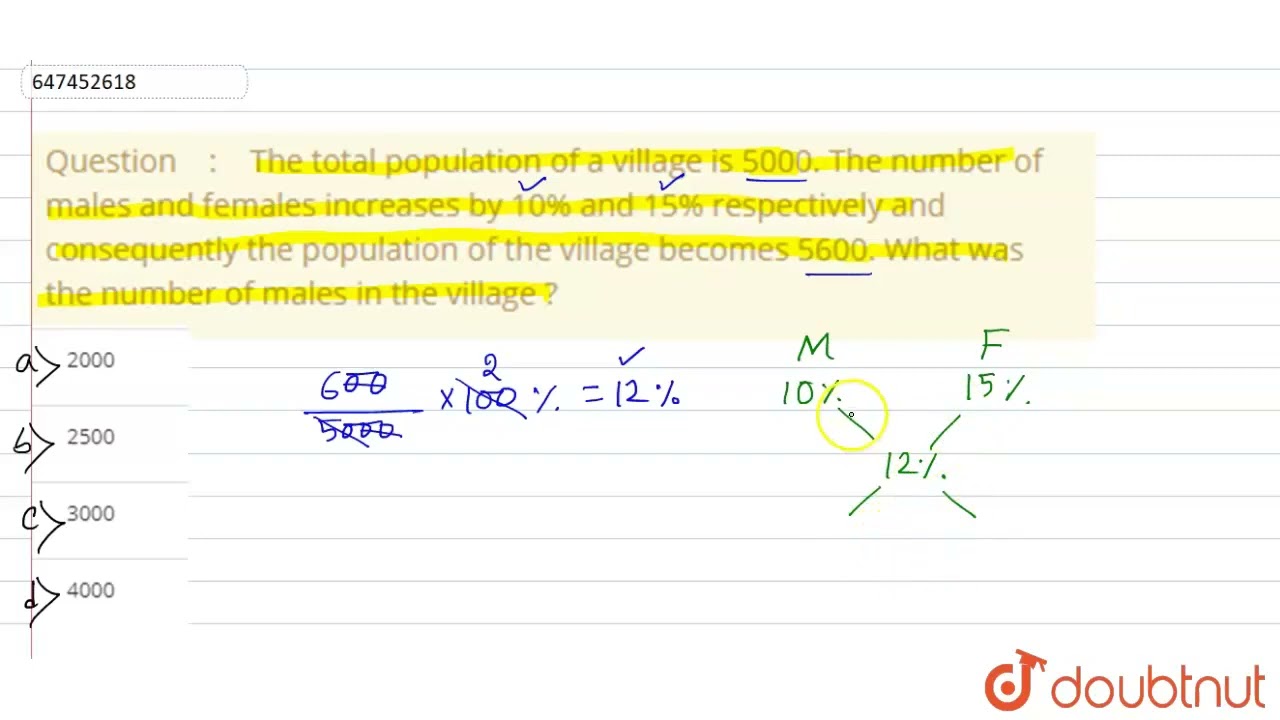 647452618
Question : The total population of a village is 5000. The number of
males and females increases by 10% and 15% respectively and
consequently the population of the village becomes 5600. What was
the number of males in the village ?
a) 2000
b) 2500
c) 3000
d) 4000
600
5000
× 100 % = 12 %
2
M F
10 %. 15 %.
12 %.
doubtnut